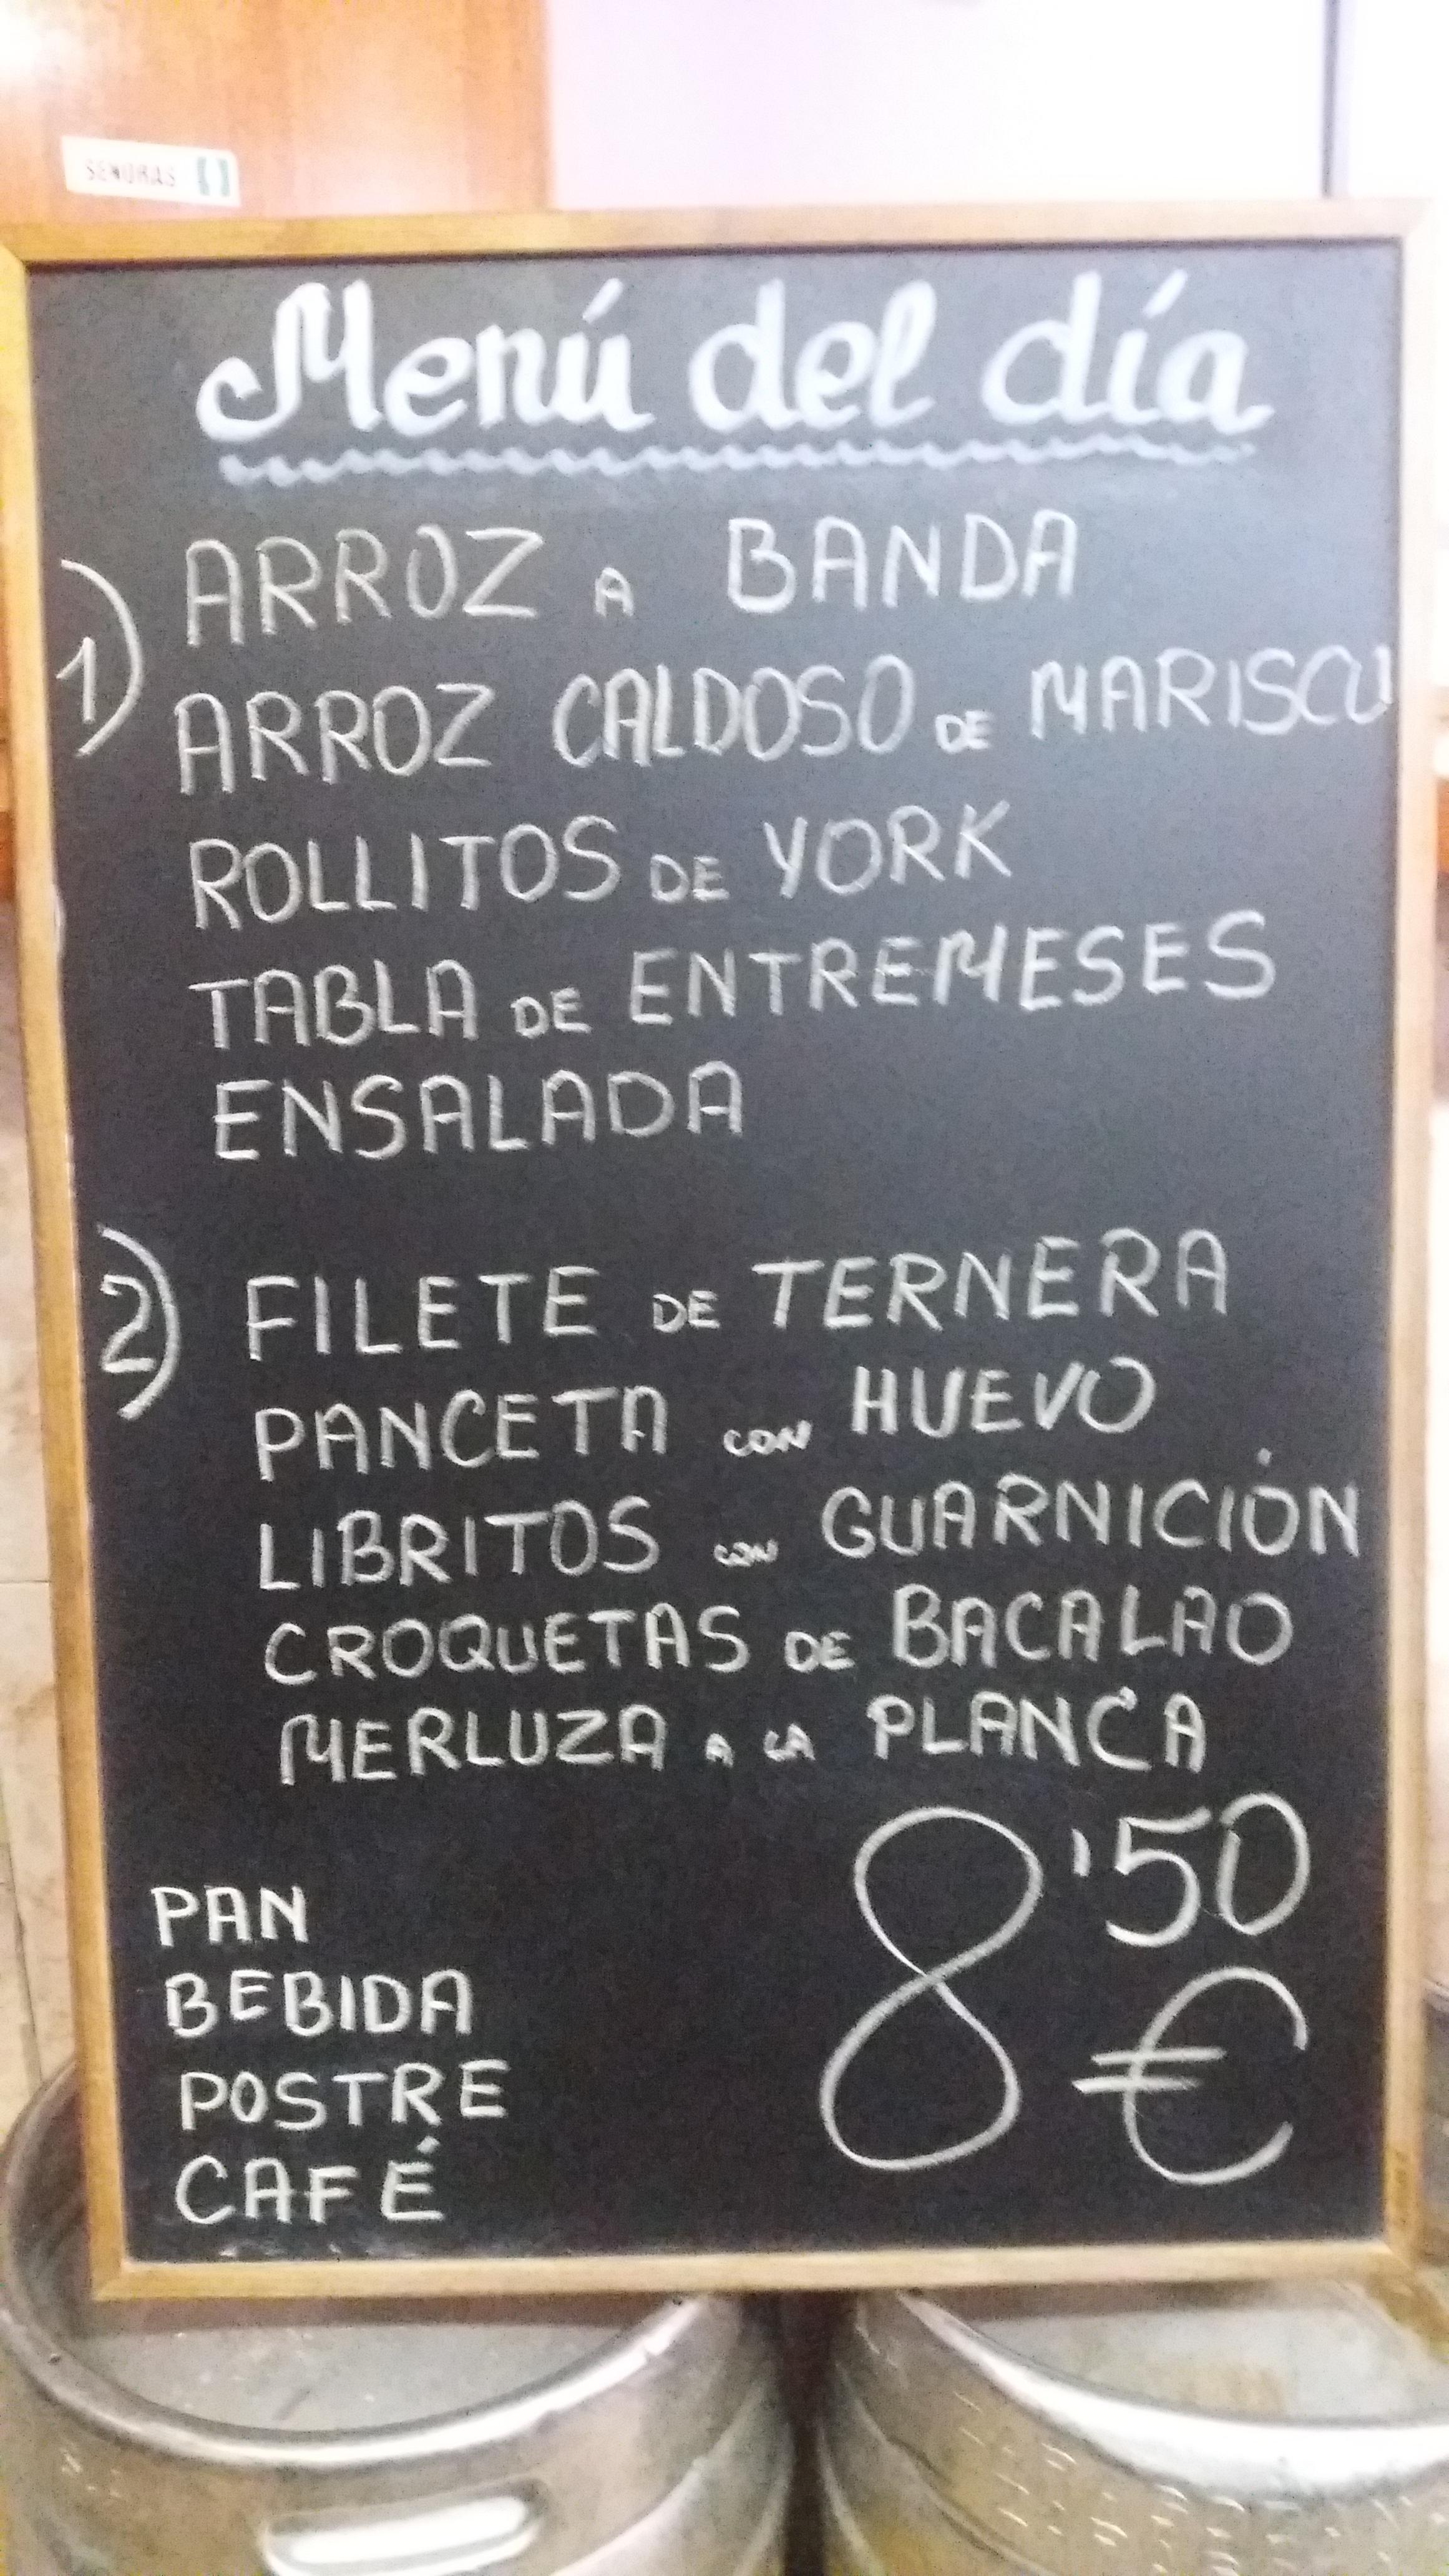 SEÑORAS
Menú del día
1) ARROZ A BANDA
ARROZ CALDOSO DE MARISCO
ROLLITOS DE YORK
TABLA DE ENTREMESES
ENSALADA
2) FILETE DE TERNERA
PANCETA CON HUEVO
LIBRITOS CON GUARNICIÓN
CROQUETAS DE BACALAO
MERLUZA A LA PLANCA
8'50
€
PAN
BEBIDA
POSTRE
CAFÉ